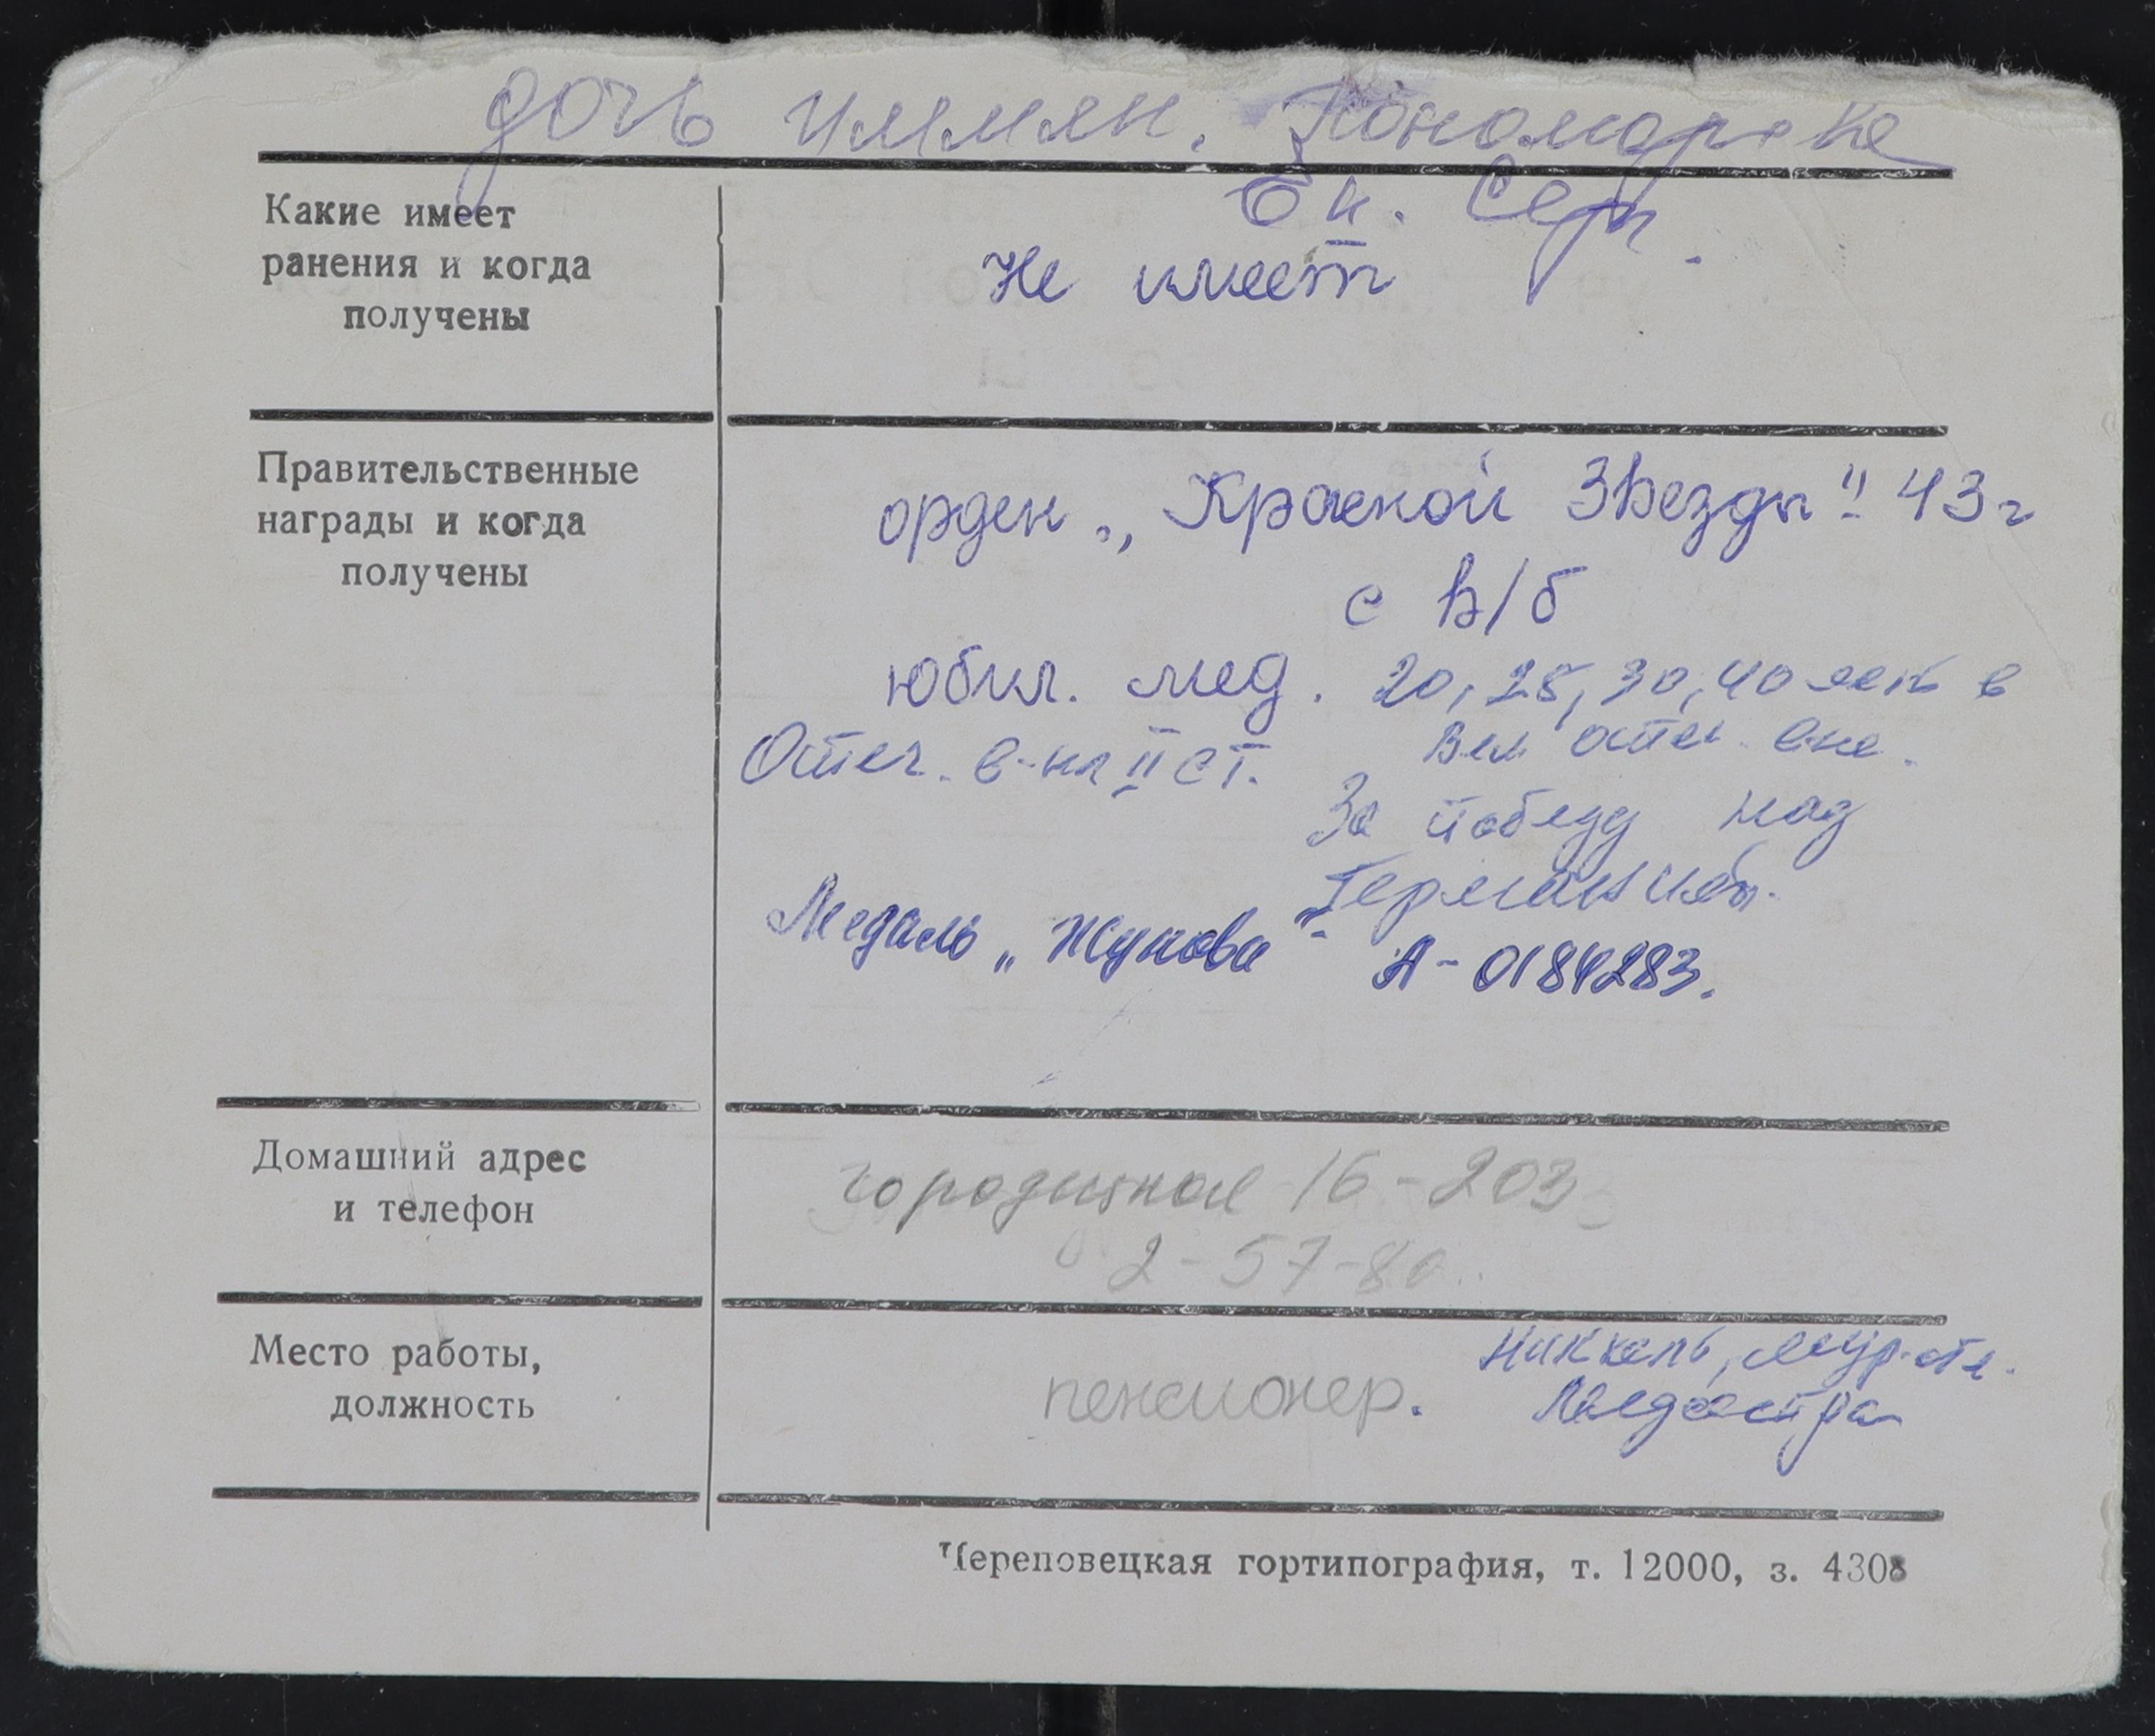 дочь Пономарева
Ек. Серг.
Какие имеет
ранения и когда
получены
Не имеет
Правительственные
награды и когда
получены
орден „Красной Звезды" 43 г
с в/б
юбил. мед. 20, 25, 30, 40 лет в
Вел отеч. в-не.
Отеч. в-ны II ст.
За победу над
Германией.
Медаль „Жукова" А-0184283.
Домашний адрес
и телефон
Городецкая 16-203
2-57-80
Место работы,
должность
пенсионер.
Никкель, мур. обл.
Медсестра
Череповецкая гортипография, т. 12000, з. 4308